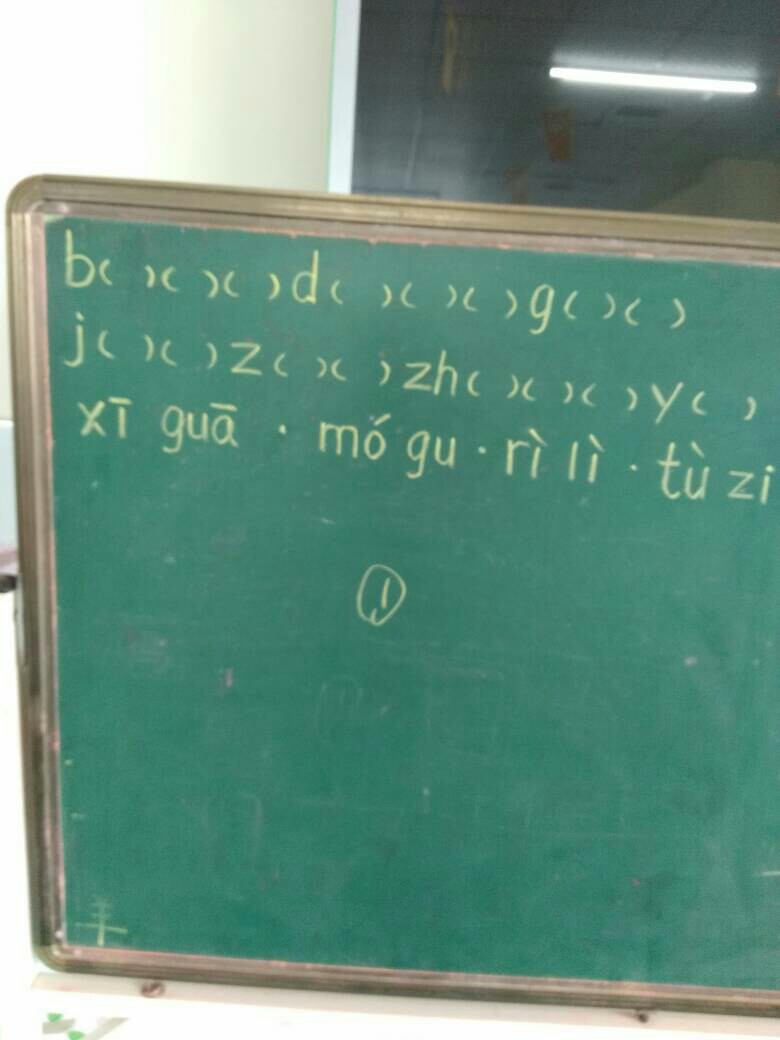 b( )( )( )d( )( )( )g( )( )
j( )( )z( )( )zh( )( )( )y( )
xī guā · mó gu · rì lì · tù zi
①